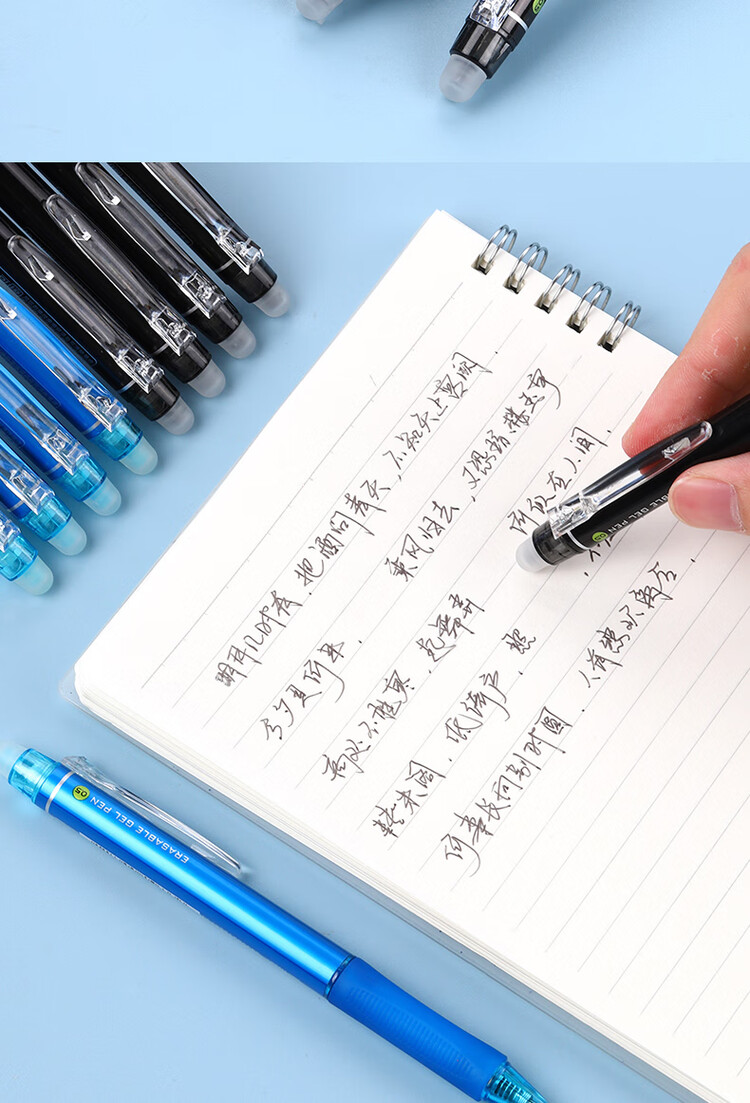 05
明月几时有，把酒问青天，不知天上宫阙，
今夕是何年. 乘风归去，又恐琼楼玉宇
高处不胜寒，起舞弄 何似在人间.
转朱阁，低绮户，照
何事长向别时圆，人有悲欢离合，
ERASABLE GEL PEN
05
ERASABLE GEL PEN